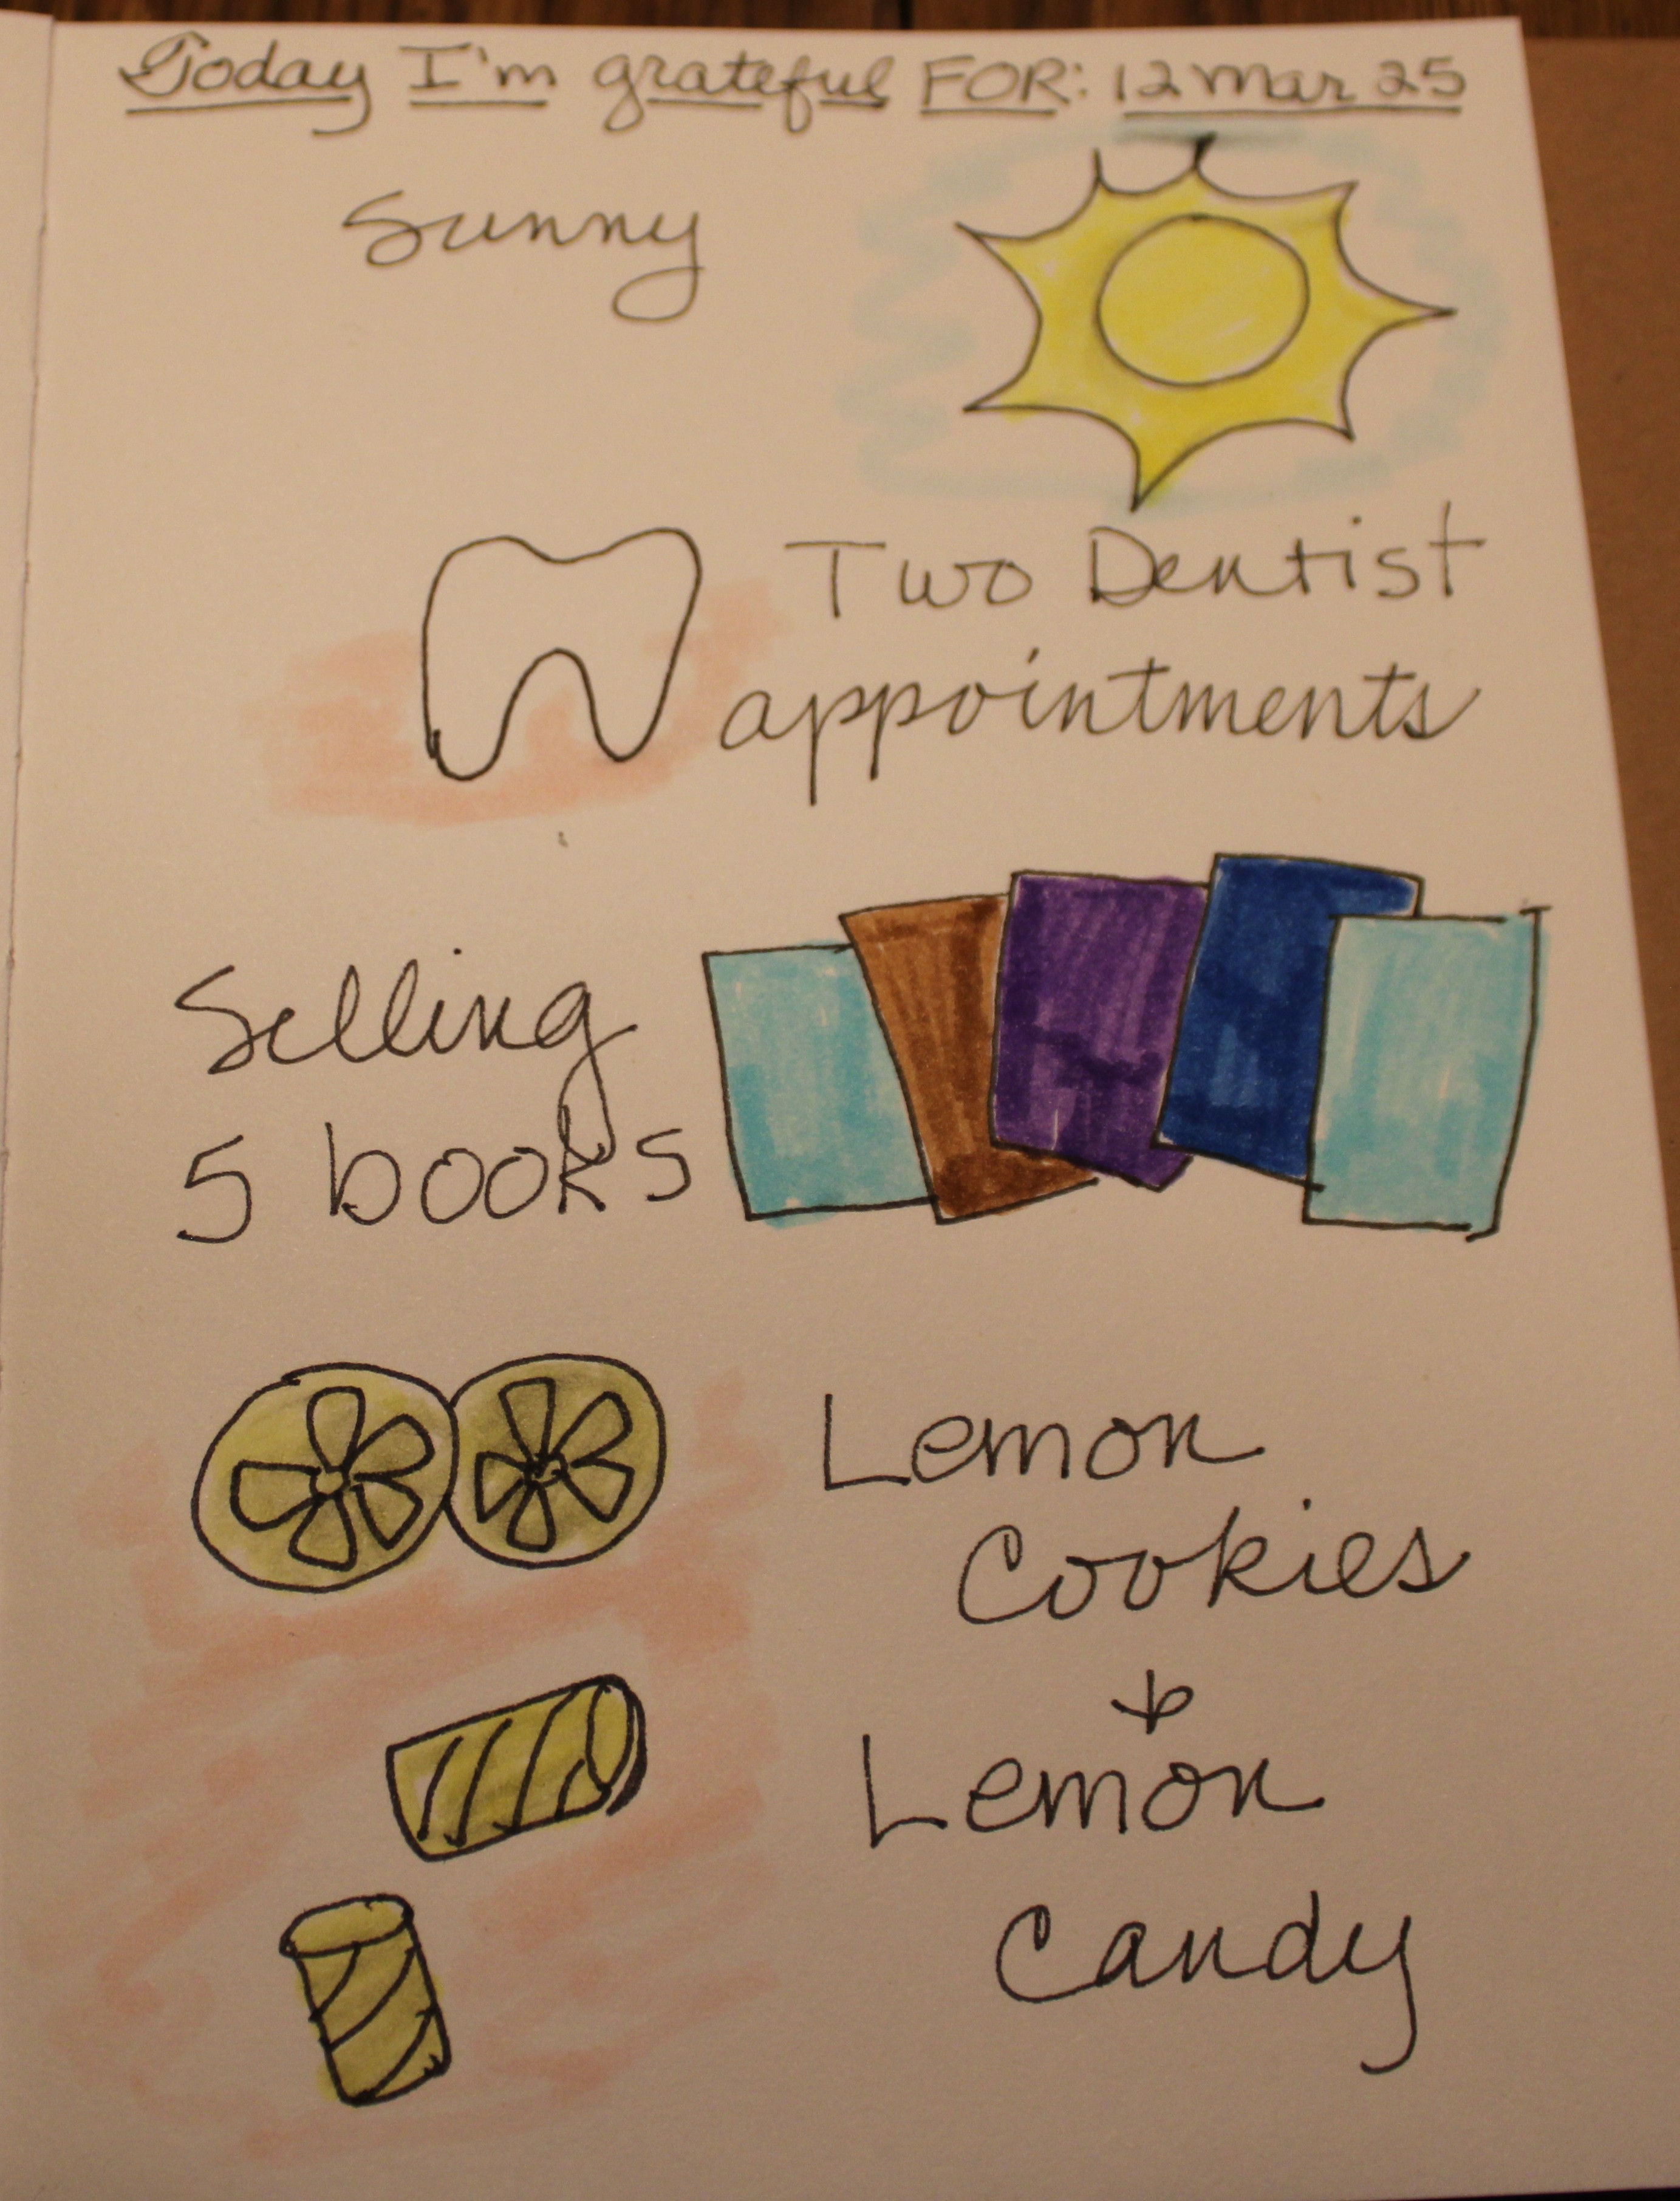 Today I'm grateful FOR: 12 Mar 25
Sunny
Two Dentist
appointments
Selling
5 books
Lemon
Cookies
&
Lemon
Candy